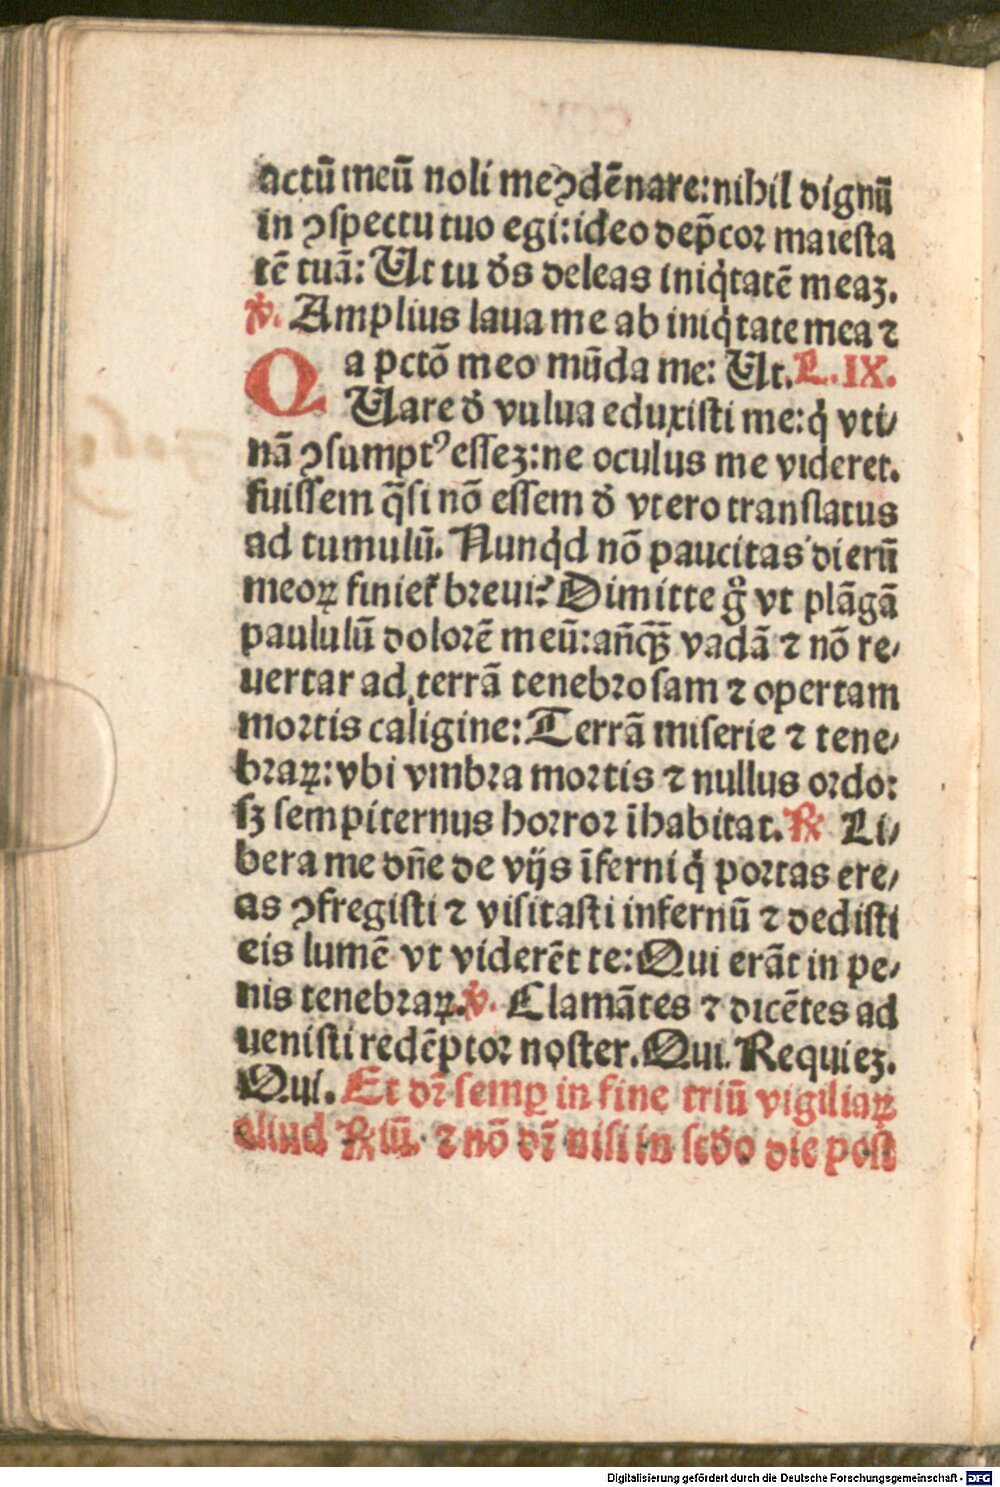 actū meū noli me ꝯdēnare: nihil dignū
in ꝯspectu tuo egi: ideo dep̄cor maiesta
tē tuā: Ut tu d̓s deleas iniq̇tatē meaꝫ.
℣. Amplius laua me ab iniq̇tate mea ⁊
a pctō meo mūda me: Ut. L. IX.
QUare d̓ vulua eduxisti me: q̇ vti/
nā ꝯsumptꝰ esseꝫ: ne oculus me videret.
fuissem q̄si nō essem d̓ vtero translatus
ad tumulū. Nunq̇d nō paucitas dierū
meoꝝ finiet̓ breui? Dimitte g̊ vt plāgā
paululū dolorē meū: añq̄ꝫ vadā ⁊ nō re/
uertar ad terrā tenebrosam ⁊ opertam
mortis caligine: Terrā miserie ⁊ tene/
braꝝ: vbi vmbra mortis ⁊ nullus ordo:
sꝫ sempiternus horror īhabitat. ℞ Li/
bera me dn̄e de vijs īferni q̇ portas ere/
as ꝯfregisti ⁊ visitasti infernū ⁊ dedisti
eis lumē vt viderēt te: Qui erāt in pe/
nis tenebraꝝ. ℣. Clamātes ⁊ dicētes ad
uenisti redēptor noster. Qui. Requieꝫ.
Qui. Et dr̄ semꝑ in fine triū vigiliaꝝ
aliud ℞iū. ⁊ nō dr̄ nisi in scd̓o die post
Digitalisierung gefördert durch die Deutsche Forschungsgemeinschaft - DFG